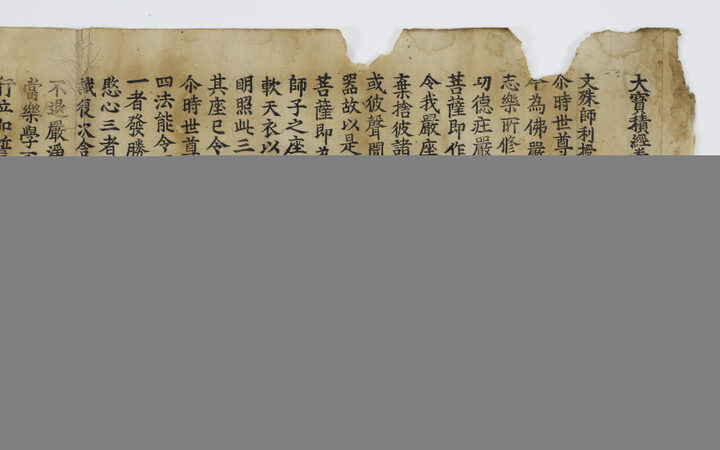 大寶積經卷
文殊師利授
尒時世尊
今為佛嚴
志樂所修
功德庄嚴
菩薩即作
令我嚴座
棄捨彼諸
或彼聲聞
器故以是
菩薩即為
師子之座
軟天衣以
明照此三
其座已令
尒時世尊
四法能令
一者發勝
愍心三者
識復次舍
不退嚴淨
當樂學
行